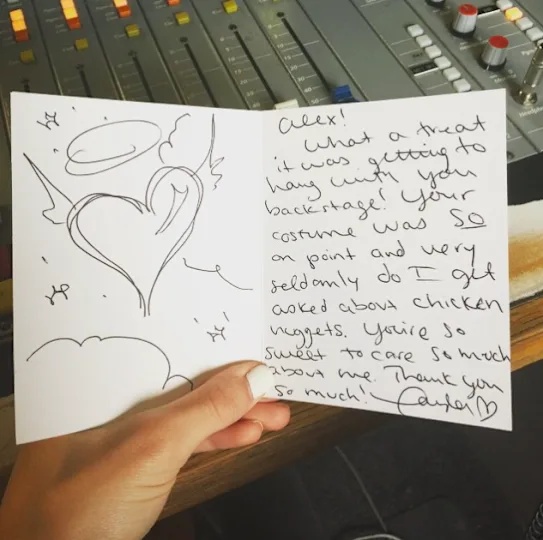 Alex!
What a treat
it was getting to
hang with you
backstage! Your
costume was SO
on point and very
seldomly do I get
asked about chicken
nuggets. You're so
sweet to care so much
about me. Thank you
so much!